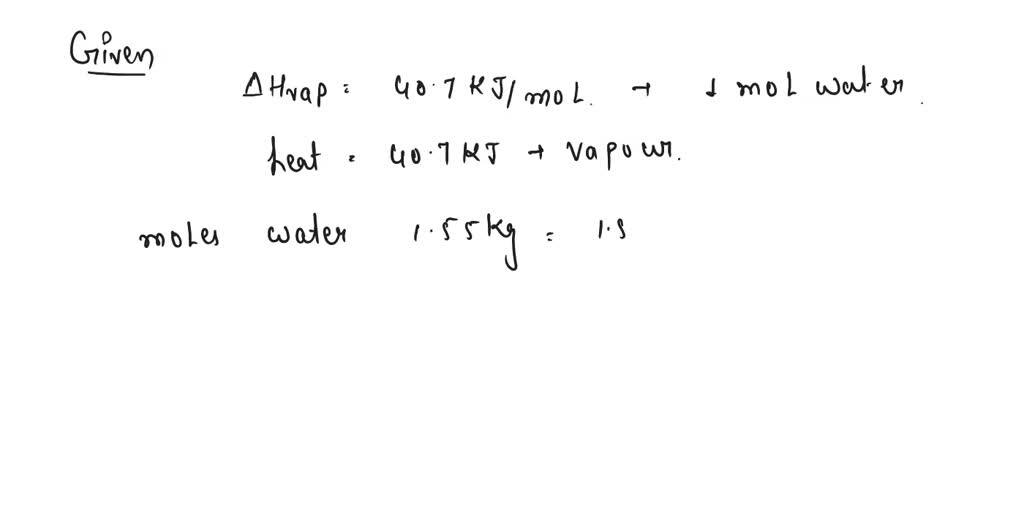 Given
ΔHvap = 40.7 KJ/mol. → 1 mol water.
heat = 40.7 KJ → vapour.
moles water 1.55kg = 1.5